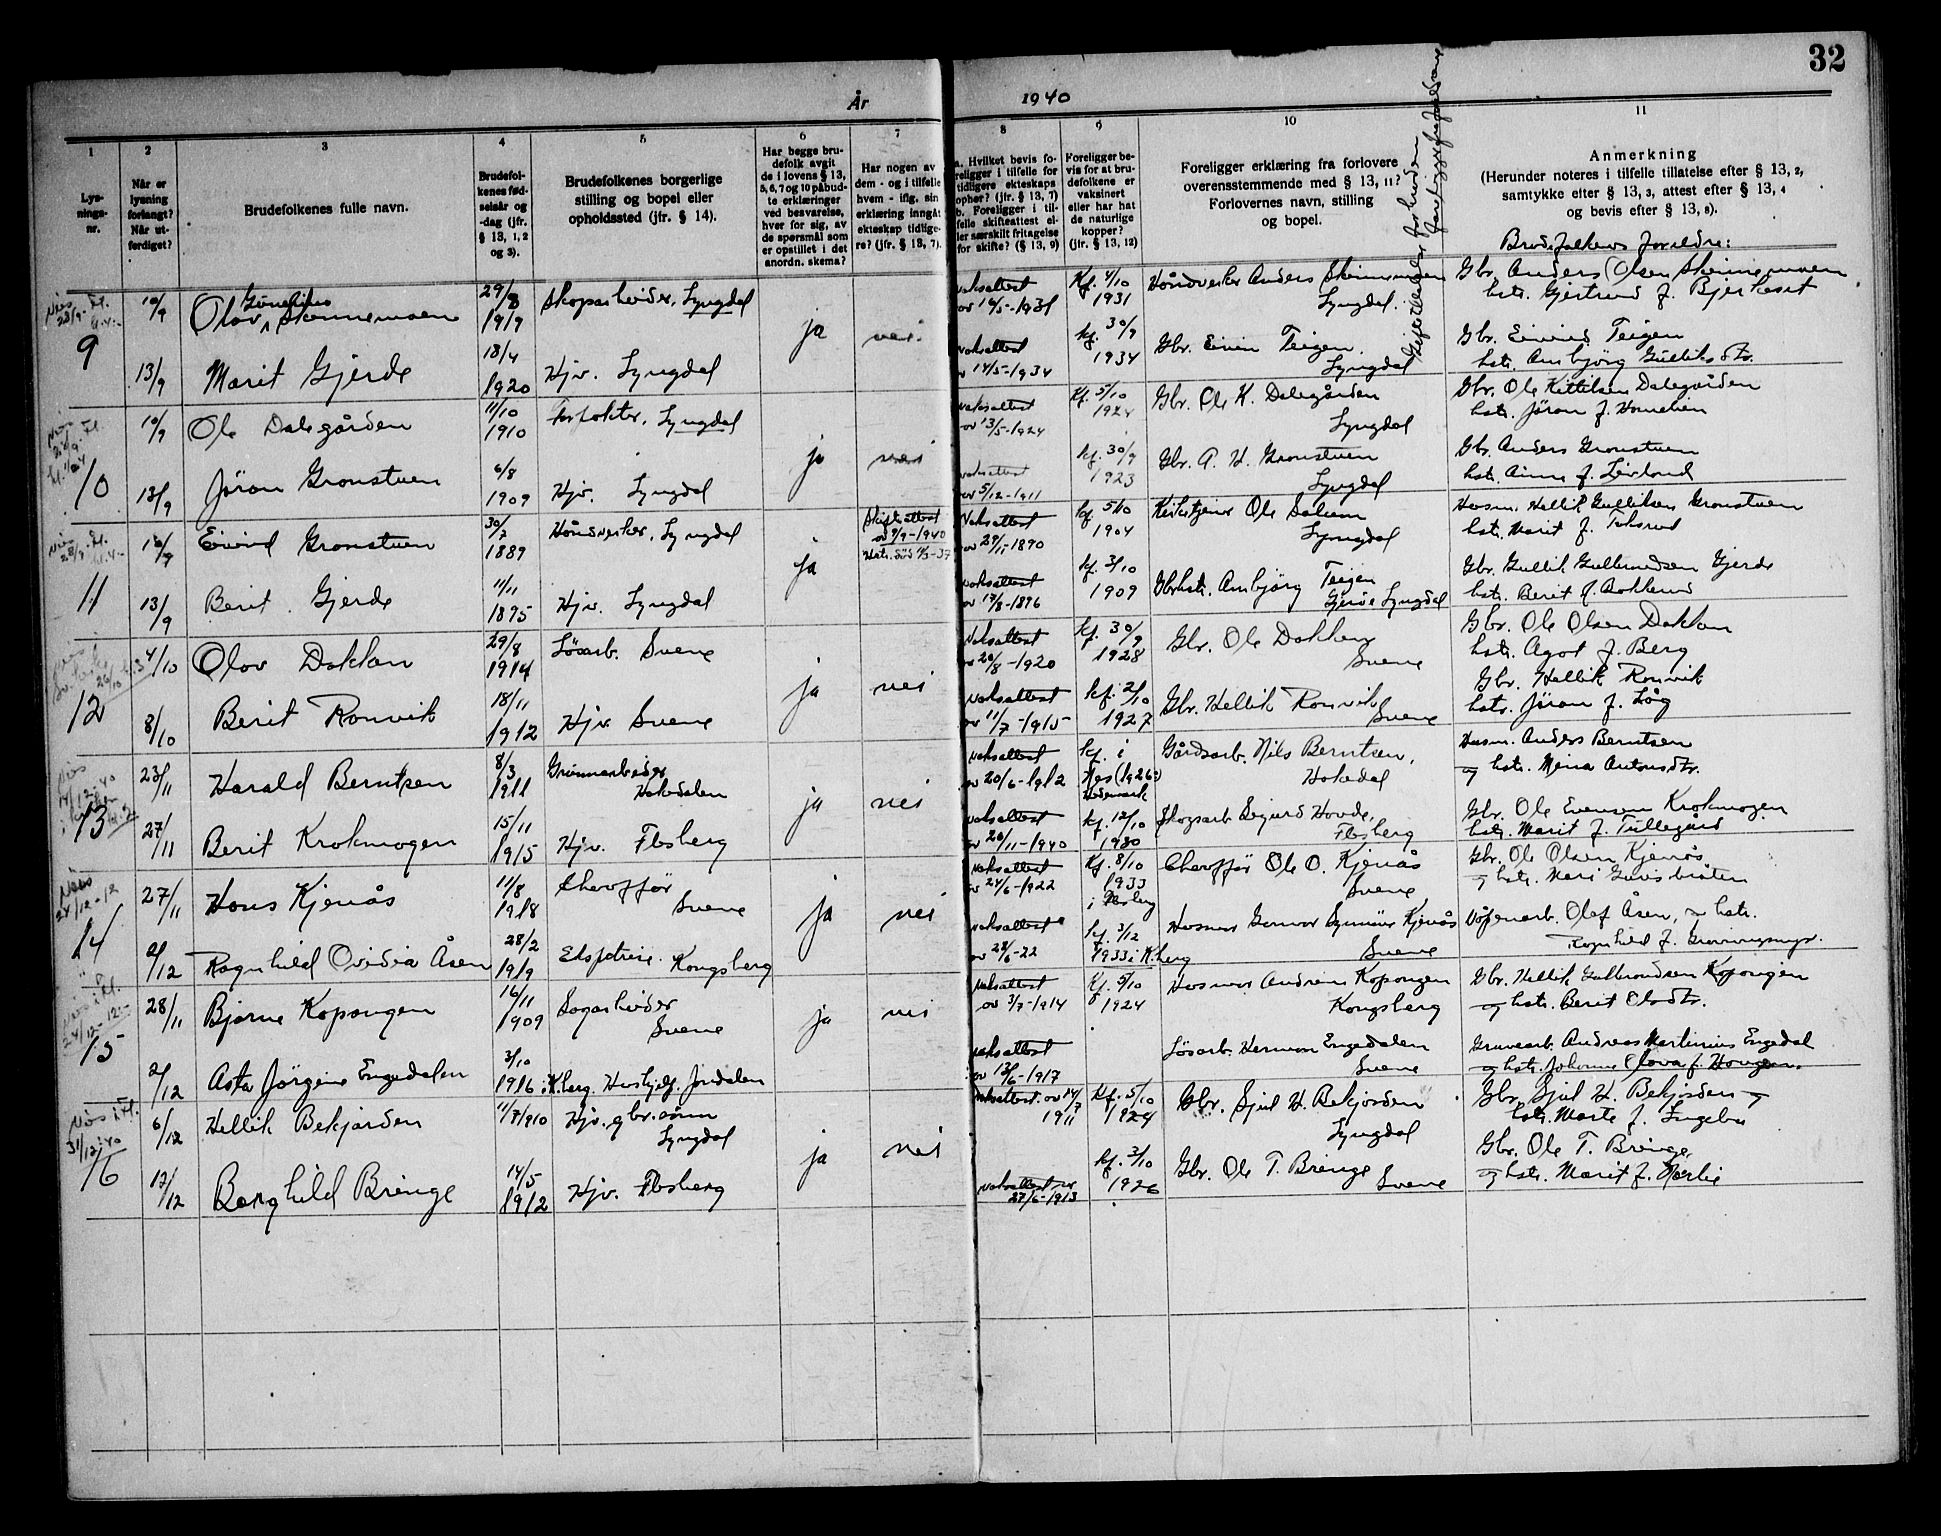 32
År 1940
1 2 3 4 5 6 7 8 9 10 11
Lys-
nings-
nr.
Når er
lysning
forlangt?
Når ut-
ferdiget?
Brudefolkenes fulle navn.
Brudefol-
kenes fød-
selsår og
-dag (jfr.
§ 13, 1, 2
og 3).
Brudefolkenes borgerlige
stilling og bopel eller
opholdssted (jfr. § 14).
Har begge bru-
defolk avgit
de i lovens § 13,
5, 6, 7 og 10 påbud-
te erklæringer
ved besvarelse,
hver for sig, av
de spørsmål som
er opstillet i det
anordn. skema?
Har nogen av
dem - og i tilfelle
hvem - iflg. sin
erklæring inngåt
ekteskap tidlige-
re? (jfr. § 13, 7).
a. Hvilket bevis fo-
religger i tilfelle for
tidligere ekteskaps
ophør? (jfr. § 13, 7)
b. Foreligger i til-
felle skifteattest el-
ler særskilt fritagelse
for skifte? (§ 13, 9)
Foreligger be-
vis for at bru-
defolkene er
vaksinert
eller har hat
de naturlige
kopper?
(jfr. § 13, 12)
Foreligger erklæring fra forlovere
overensstemmende med § 13, 11?
Forlovernes navn, stilling
og bopel.
Anmerkning
(Herunder noteres i tilfelle tillatelse efter § 13, 2,
samtykke efter § 13, 3, attest efter § 13, 4
og bevis efter § 13, 8).
Brudefolkenes foreldre:
9
10/9 Olov Skinnemoen 29/8 1919 Skogsarbeider, Lyngdal ja nei vaksattest av 14/5-1931 Kf. 4/10 1931 Håndverker Anders Skinnemoen Lyngdal. Gbr. Anders Olsen Skinnemoen
hstr. Gjertrud f. Bjerkeset
13/9 Marit Gjerde 18/4 1920 Hjv. Lyngdal vaksattest av 14/5-1934 kf. 30/9 1934 Gbr. Eivin Teigen. Lyngdal Gbr. Eivind Teigen
hstr. Ambjørg Gulliksdtr.
10
10/9 Ole Dalegården 11/10 1910 Forpakter, Lyngdal ja nei vaksattest av 13/5-1924 kf. 5/10 1924 Gbr. Ole K. Dalegården Lyngdal Gbr. Ole Kittilsen Dalegården
hstr. Jøran f.
13/9 Jøran Gronstuen 6/8 1909 Hjv. Lyngdal vaksattest av 5/12-1911 kf. 30/9 1923 Gbr. A. H. Gronstuen Lyngdal Gbr. Anders Gronstuen
hstr. f.
11
10/9 Eivind Gronstuen 30/7 1889 Håndverker, Lyngdal ja Skifteattest av 9/9-1940 Hstr. død -37 Vaksattest av 1890 kf. 5/10 1904 Kirketjener Ole Lyngdal Husm. Hellik Gulliksen Gronstuen
hstr. Marit f.
13/9 Berit Gjerde 11/11 1895 Hjv. Lyngdal vaksattest av 17/8-1896 kf. 3/10 1909 Gbrhstr. Ambjørg Teigen Gjerde Lyngdal Gbr. Gullik Gulbrandsen Gjerde
hstr. Berit f. Bakkerud
12
4/10 Olav Dokkan 29/8 1914 Løsarb. Svene ja nei Vaksattest av 20/8-1920 kf. 30/9 1928 Gbr. Ole Dokken Svene Gbr. Ole Olsen Dokkan
hstr. Agot f. Berg
8/10 Berit Ronvik 18/11 1912 Hjv. Svene vaksattest av 11/7-1915 kf. 2/10 1927 Gbr. Hellik Ronvik Svene Gbr. Hellik Ronvik
hstr. Jøran f. Låg
13
23/11 Harald Berntsen 8/3 1911 Grønnarbeider Hakadalen ja nei vaksattest av 20/6-1912 kf. i Nes (1926) Hedemark Gårdsarb. Nils Berntsen, Hakadal Husm. Anders Berntsen
og hstr. Mina Antonsdtr.
27/11 Berit Krokmogen 15/11 1915 Hjv. Flesberg vaksattest av 20/11-1940 kf. 12/10 1930 Skogsarb Sigurd Hovde, Flesberg Gbr. Ole Evensen Krokmogen
hstr. Marit f. Tullegård
14
27/11 Hans Kjenås 11/8 1918 Chauffør Svene ja nei vaksattest av 24/6-1922 Kf. 8/10 1933 i Flesberg Chauffør Ole O. Kjenås Svene Gbr. Ole Olsen Kjenås
og hstr. Mari
2/12 Ragnhild Ovidia Åsen 28/2 1919 Kongsberg vaksattest av 28/6-22 kf. 3/12 1933 i K.berg Husmor Gunvor Kjenås Svene Våpenarb. Olaf Åsen, og hstr.
Ragnhild f.
15
28/11 Bjarne Kopongen 16/11 1909 Sagarbeider Svene ja nei vaksattest av 3/7-1914 Kf. 5/10 1924 Husmor Andrine Kopongen Kongsberg Gbr. Hellik Gulbrandsen Kopongen
og hstr. Berit Olsdtr.
2/12 Asta Jørgine Engedalen 3/10 1916 K.berg. Hushjelp. Jondalen vaksattest av 13/6-1917 Løsarb. Herman Engedalen Svene Gruvearb. Andreas Martinius Engedal
og hstr. Johanne f. Haugen.
16
6/12 Hellik Bekjorden 11/7 1910 Hjv. gbr. sønn Lyngdal ja nei vaksattest av 14/7 1911 Kf. 5/10 1924 Gbr. Sjul H. Bekjorden Lyngdal Gbr. Sjul H. Bekjorden og
hstr. Marte f.
12/12 Borghild Bringe 14/5 1912 Hjv. Flesberg vaksattest av 27/6-1913 kf. 3/10 1926 Gbr. Ole T. Bringe Svene Gbr. Ole T. Bringe
og hstr. Marit f.